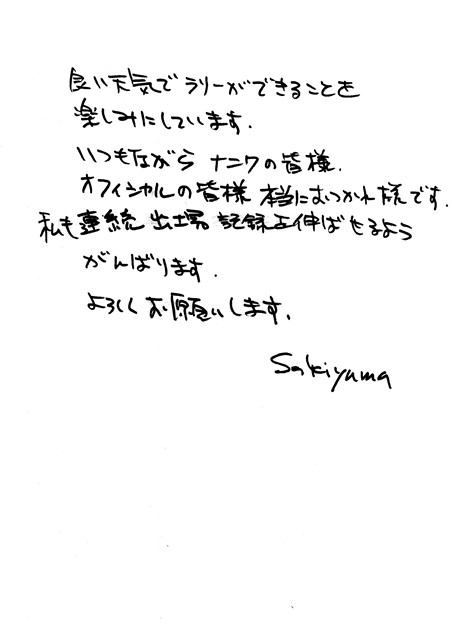 良い天気でラリーができることを
楽しみにしています.
いつもながら ナニワの皆様.
オフィシャルの皆様 本当におつかれ様です.
私も連続出場記録を伸ばせるよう
がんばります.
よろしくお願いします.
Sakiyama